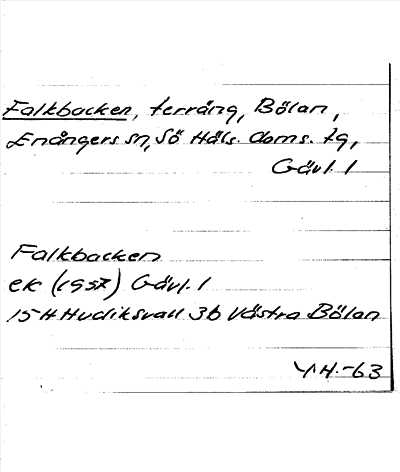 Falkbacken, terräng, Bölan,
Enångers sn, Sö Häls. doms. tg,
Gävl. l
Falkbacken
ek (1957) Gävl. l
15 H Hudiksvall 3b Västra Bölan
YH.-63